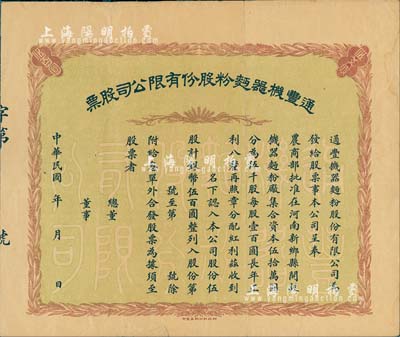 上海陽明拍賣
通豐機器麵粉股份有限公司股票
通豐機器麵粉股份有限公司為
發給股票事本公司呈奉
農商部批准在河南新鄉縣開設
機器麵粉廠集合資本伍拾萬圓
分為伍千股每股壹百圓長年
利八厘再照章分配紅利茲收到
名下認入本公司股份伍
股計銀幣伍百圓整列入股份第
號至第 號除
附給息單外合發股票為據須至
股票者
總董
董事
中華民國 年 月 日
字第 號
上海陽明拍賣